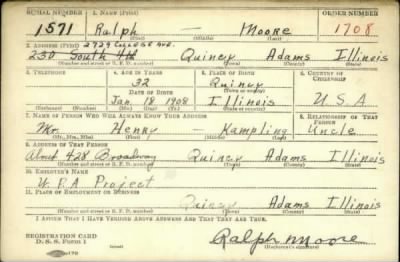 SERIAL NUMBER 1. NAME (Print) ORDER NUMBER
1571 Ralph — Moore 1708
2. ADDRESS (Print) 2729 College Ave.
230 South 4th Quincy Adams Illinois
3. TELEPHONE 4. AGE IN YEARS 5. PLACE OF BIRTH 6. COUNTRY OF CITIZENSHIP
32 Quincy
DATE OF BIRTH
Jan. 18 1908 Illinois U.S.A
7. NAME OF PERSON WHO WILL ALWAYS KNOW YOUR ADDRESS 8. RELATIONSHIP OF THAT PERSON
Mr. Henry — Kampling Uncle
(Mr., Mrs., Miss) (First) (Middle) (Last)
9. ADDRESS OF THAT PERSON
428 Broadway Quincy Adams Illinois
(Number and street or R. F. D. number) (Town) (County) (State)
10. EMPLOYER'S NAME
W.P.A Project
11. PLACE OF EMPLOYMENT OR BUSINESS
Quincy Adams Illinois
(Number and street or R. F. D. number) (Town) (County) (State)
I AFFIRM THAT I HAVE VERIFIED ABOVE ANSWERS AND THAT THEY ARE TRUE.
REGISTRATION CARD
D. S. S. Form 1 Ralph Moore
(Registrant's signature)